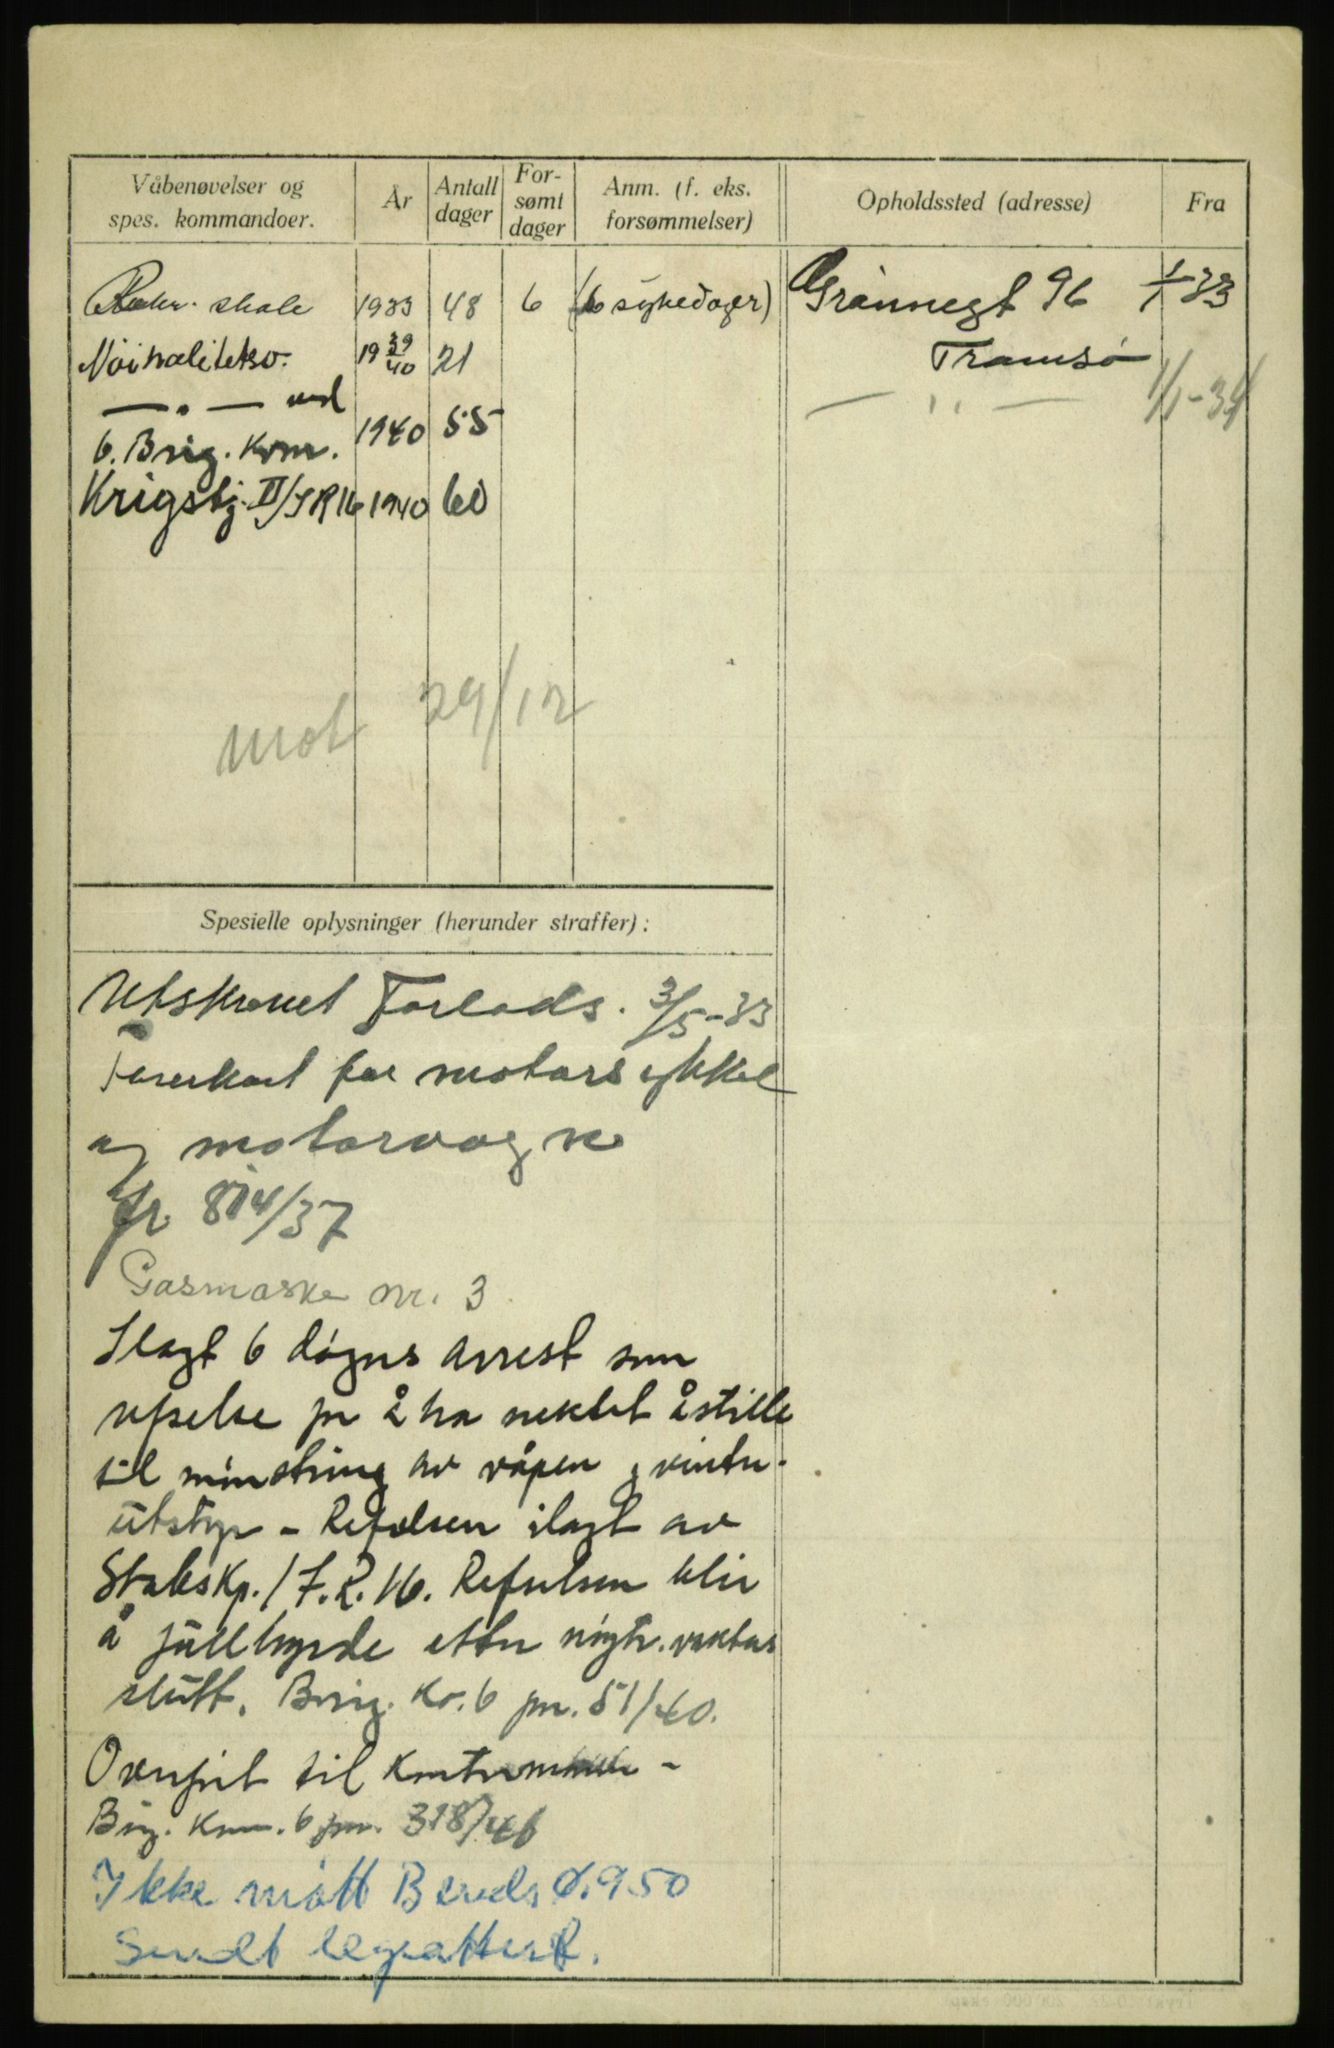 Våbenøvelser og
spes. kommandoer.
År
Antall
dager
For-
sømt
dager
Anm. (f. eks.
forsømmelser)
Opholdssted (adresse)
Fra
Rekr. skole 1933 48 6 (6 sykedager)
Grønnegt 96 1/1 33
Tromsø
Nøitralitetsv. 19 39/40 21
— " — 1/1-34
— " — ved
6. Brig. Kom. 1940 55
Krigstj. II/IR16 1940 60
Møt 29/12
Spesielle oplysninger (herunder straffer):
Utskrevet Forlads. 3/5-33
Førerkort for motorsykkel
og motorvogn
Jfr. 814/37
Gasmaske nr. 3
Ilagt 6 døgns arrest som
refselse for å ha nektet å stille
til mønstring av våpen og vinter-
utstyr - Refselsen ilagt av
Stabskp./I.R.16. Refselsen blir
å fullbyrde etter nøytr.vaktens
slutt. Brig. Ko. 6 jnr. 51/40.
Overført til
Brig. Kom. 6 jnr. 318/46
Ikke møtt Bereds. Ø. 950
Sendt legeattest.